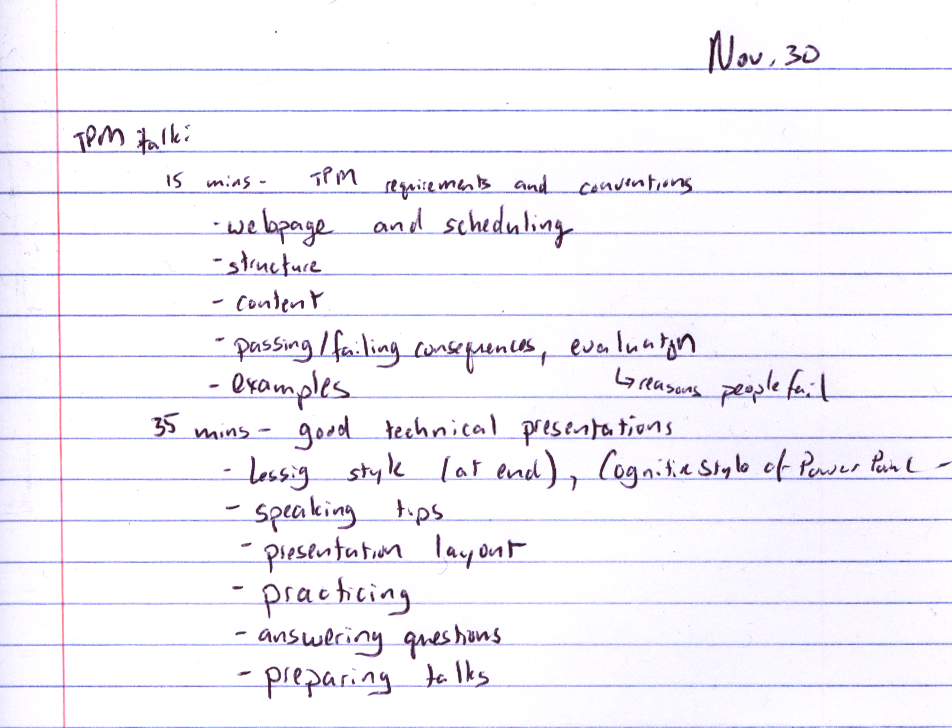 Nov. 30
TPM talk:
15 mins - TPM requirements and conventions
- webpage and scheduling
- structure
- content
- passing/failing consequences, evaluation
- examples ↳ reasons people fail
35 mins - good technical presentations
- Lessig style (at end), Cognitive Style of Power Point -
- speaking tips
- presentation layout
- practicing
- answering questions
- preparing talks